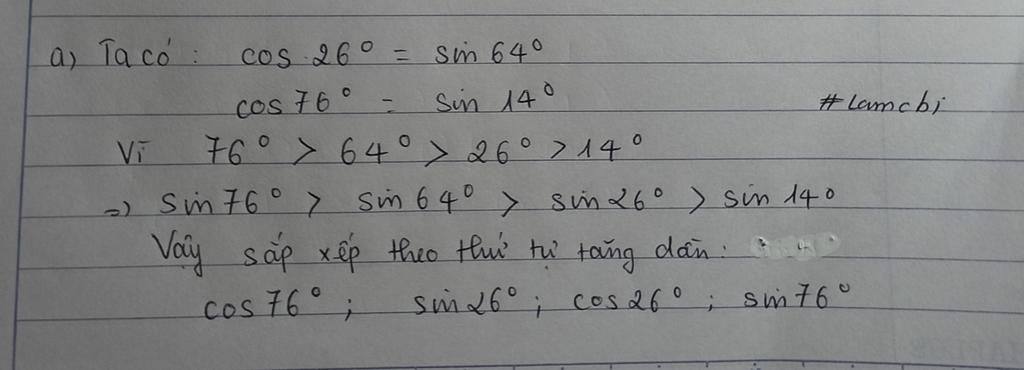 a) Ta có : cos 26° = sin 64°
cos 76° = sin 14°
#Lamchi
Vì 76° > 64° > 26° > 14°
=> sin 76° > sin 64° > sin 26° > sin 14°
Vậy sắp xếp theo thứ tự tăng dần:
cos 76° ; sin 26° ; cos 26° ; sin 76°